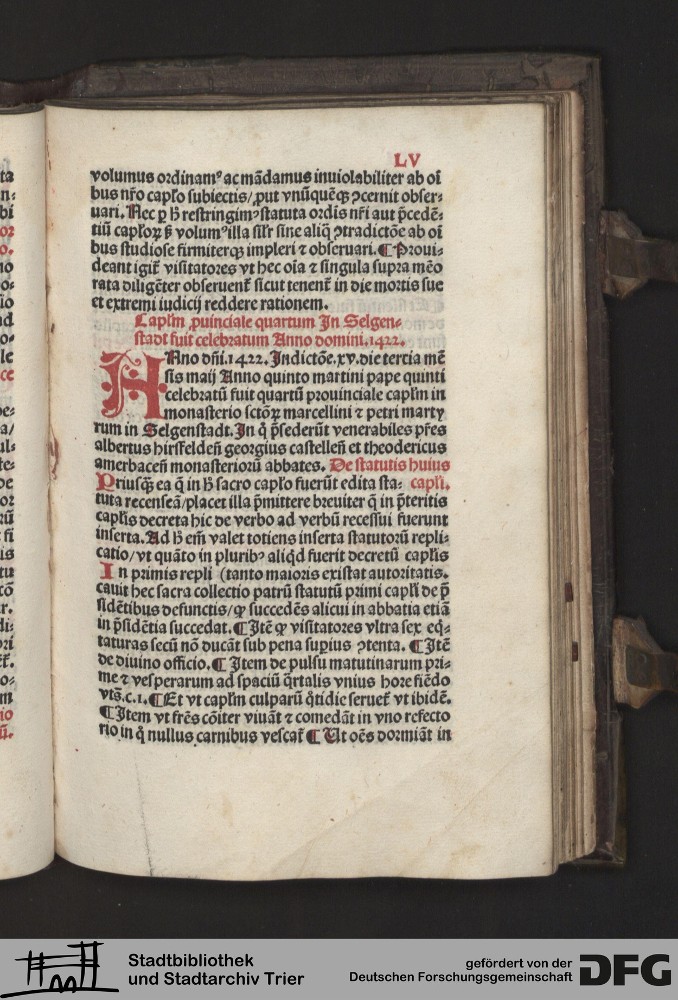 LV
volumus ordinamꝰ ac mādamus inuiolabiliter ab oī
bus nr̄o capło subiectis/ ꝓut vnūquēqꝫ ꝯcernit obser⸗
uari. Nec ꝑ h̄ restringimꝰ statuta ordīs nr̄i aut p̄cedē⸗
tiū capłoꝝ sꝫ volumꝰ illa sil̄r sine aliq̄ ꝯtradictōe ab oī
bus studiose firmiterqꝫ impleri ⁊ obseruari. ¶ Proui⸗
deant igit᷑ visitatores vt hec oīa ⁊ singula supra mēo
rata diligēter obseruent᷑ sicut tenent᷑ in die mortis sue
et extremi iudicij reddere rationem.
Caplm̄ ꝓuinciale quartum In Selgen⸗
stadt fuit celebratum Anno domini. 1422.
ANno dn̄i. 1422. Indictōe. xv. die tercia mē
sis maij Anno quinto martini pape quinti
celebratū fuit quartū prouinciale caplm̄ in
monasterio sctōꝝ marcellini ⁊ petri martẏ
rum in Selgenstadt. In q̄ p̄sederūt venerabiles pr̄es
albertus hirsfeldeñ georgius castelleñ et theodericus
amerbaceñ monasterioru abbates. De statutis huius
Priusqꝫ ea q̄ in h̄ sacro capło fuerūt edita sta⸗ capłi.
tuta recenseā/ placet illa p̄mittere breuiter q̄ in p̄teritis
capłis decreta hic de verbo ad verbū recessui fuerunt
inserta. Ad h̄ em̄ valet totiens inserta statutorū repli⸗
catio/ vt quāto in pluribꝰ aliqd̄ fuerit decretū capłis
In primis repli (tanto maioris existat autoritatis.
cauit hec sacra collectio patrū statutū primi capłi de p̄
sidētibus defunctis/ ꝙ succedēs alicui in abbatia etiā
in p̄sidētia succedat. ¶ Itē ꝙ visitatores vltra sex eq̄⸗
taturas secū nō ducāt sub pena suꝑius ꝯtenta. ¶ Itē
de diuino officio. ¶ Item de pulsu matutinarum pri⸗
me ⁊ vesperarum ad spaciū q̄rtalis vnius hore fiēdo
vts̄. c. 1. ¶ Et vt caplm̄ culparū q̄tidie seruet᷑ vt ibidē.
¶ Item vt fr̄es cōiter viuāt ⁊ comedāt in vno refecto
rio in q̄ nullus carnibus vescat᷑ ¶ Ut oēs dormiāt in
Stadtbibliothek
und Stadtarchiv Trier
gefördert von der
Deutschen Forschungsgemeinschaft
DFG